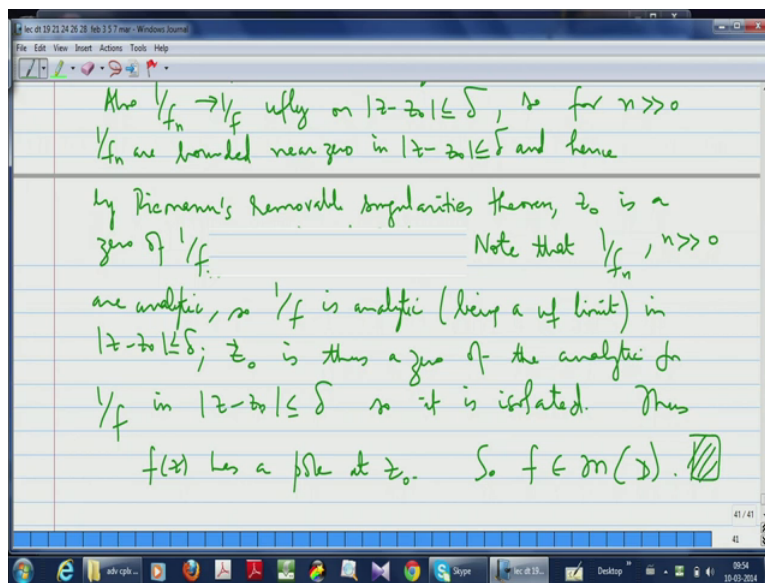 lec dt 19 21 24 26 28 feb 3 5 7 mar - Windows Journal
File Edit View Insert Actions Tools Help
Also 1/fn → 1/f ufly on |z - z0| ≤ δ, so for n >> 0
1/fn are bounded near zero in |z - z0| ≤ δ and hence
by Riemann's Removable singularities theorem, z0 is a
zero of 1/f. Note that 1/fn, n >> 0
are analytic, so 1/f is analytic (being a uf limit) in
|z - z0| ≤ δ; z0 is thus a zero of the analytic fn
1/f in |z - z0| ≤ δ so it is isolated. Thus
f(z) has a pole at z0. So f ∈ m(D).
41 / 41
41
adv cplx ...
Skype
lec dt 19...
Desktop
09:54
10-03-2014